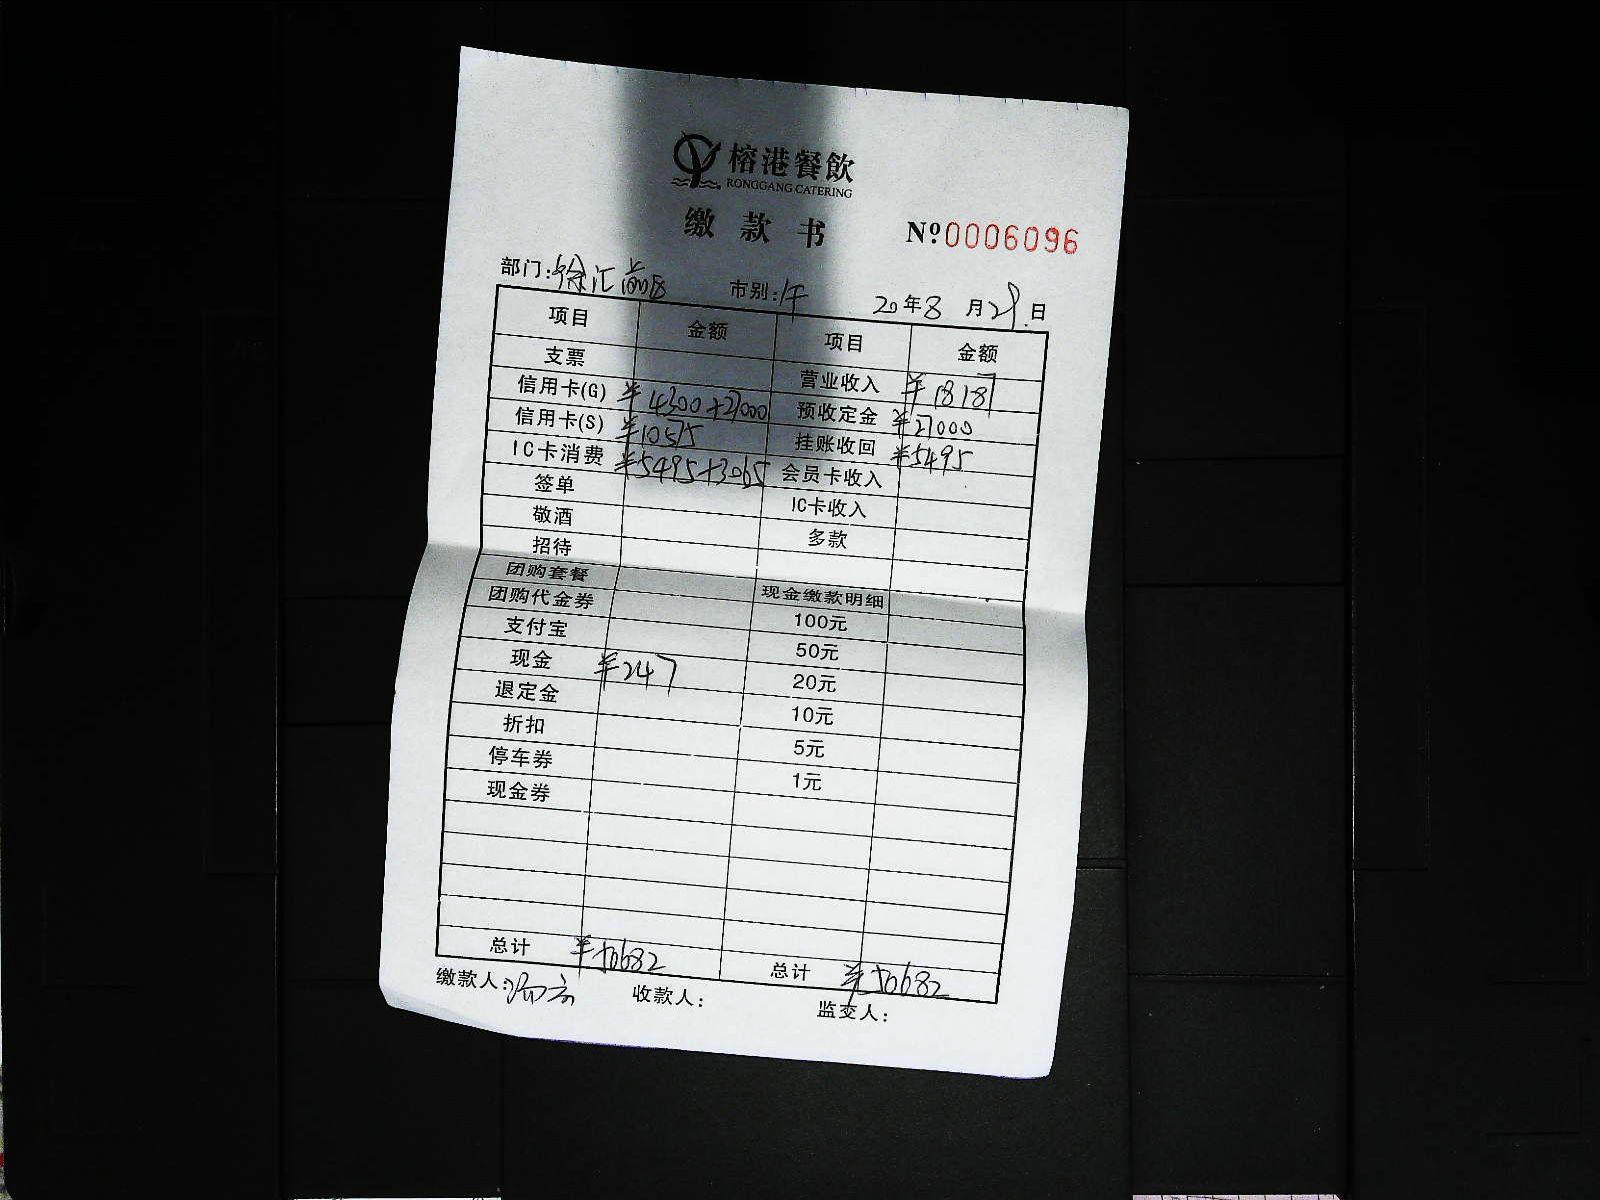 榕港餐飲
RONGGANG CATERING
缴款书 Nº0006096
部门:徐汇 市别:午 20年8月29日
项目 金额 项目 金额
支票 营业收入 ¥18187
信用卡(G) ¥4300+27000 预收定金 ¥27000
信用卡(S) ¥10575 挂账收回 ¥5495
IC卡消费 ¥5495+3065 会员卡收入
签单 IC卡收入
敬酒 多款
招待
团购套餐 现金缴款明细
团购代金券 100元
支付宝 50元
现金 ¥247 20元
退定金 10元
折扣 5元
停车券 1元
现金券
总计 ¥50682 总计 ¥50682
缴款人: 收款人: 监交人: